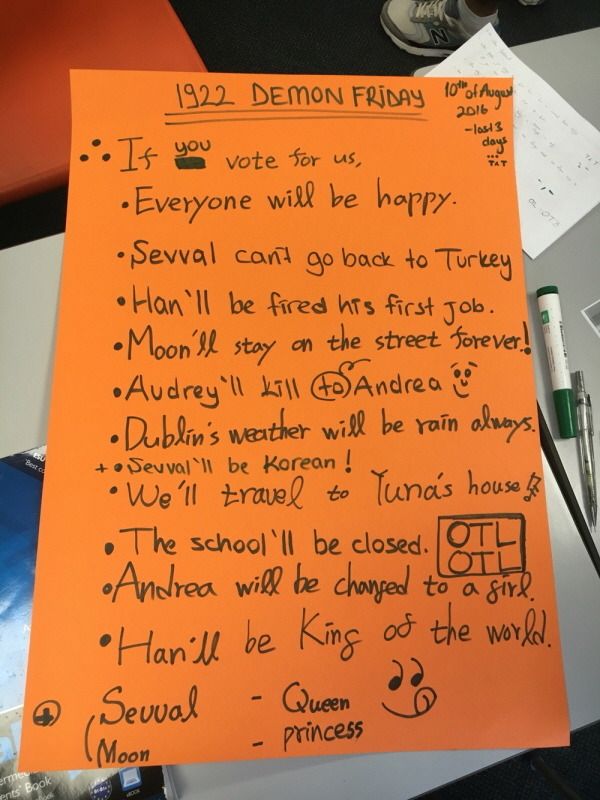 1922 DEMON FRIDAY
10th of August
2016
- last 3
days
TAT
If you vote for us,
• Everyone will be happy.
• Sevval can't go back to Turkey
• Han'll be fired his first job.
• Moon'll stay on the street forever!
• Audrey'll kill to Andrea
• Dublin's weather will be rain always.
+ • Sevval'll be Korean!
• We'll travel to Yuna's house!?
• The school'll be closed.
OTL
OTL
• Andrea will be changed to a girl.
• Han'll be King of the world.
+ Sevval - Queen
Moon - princess
Students' Book
eBOOK